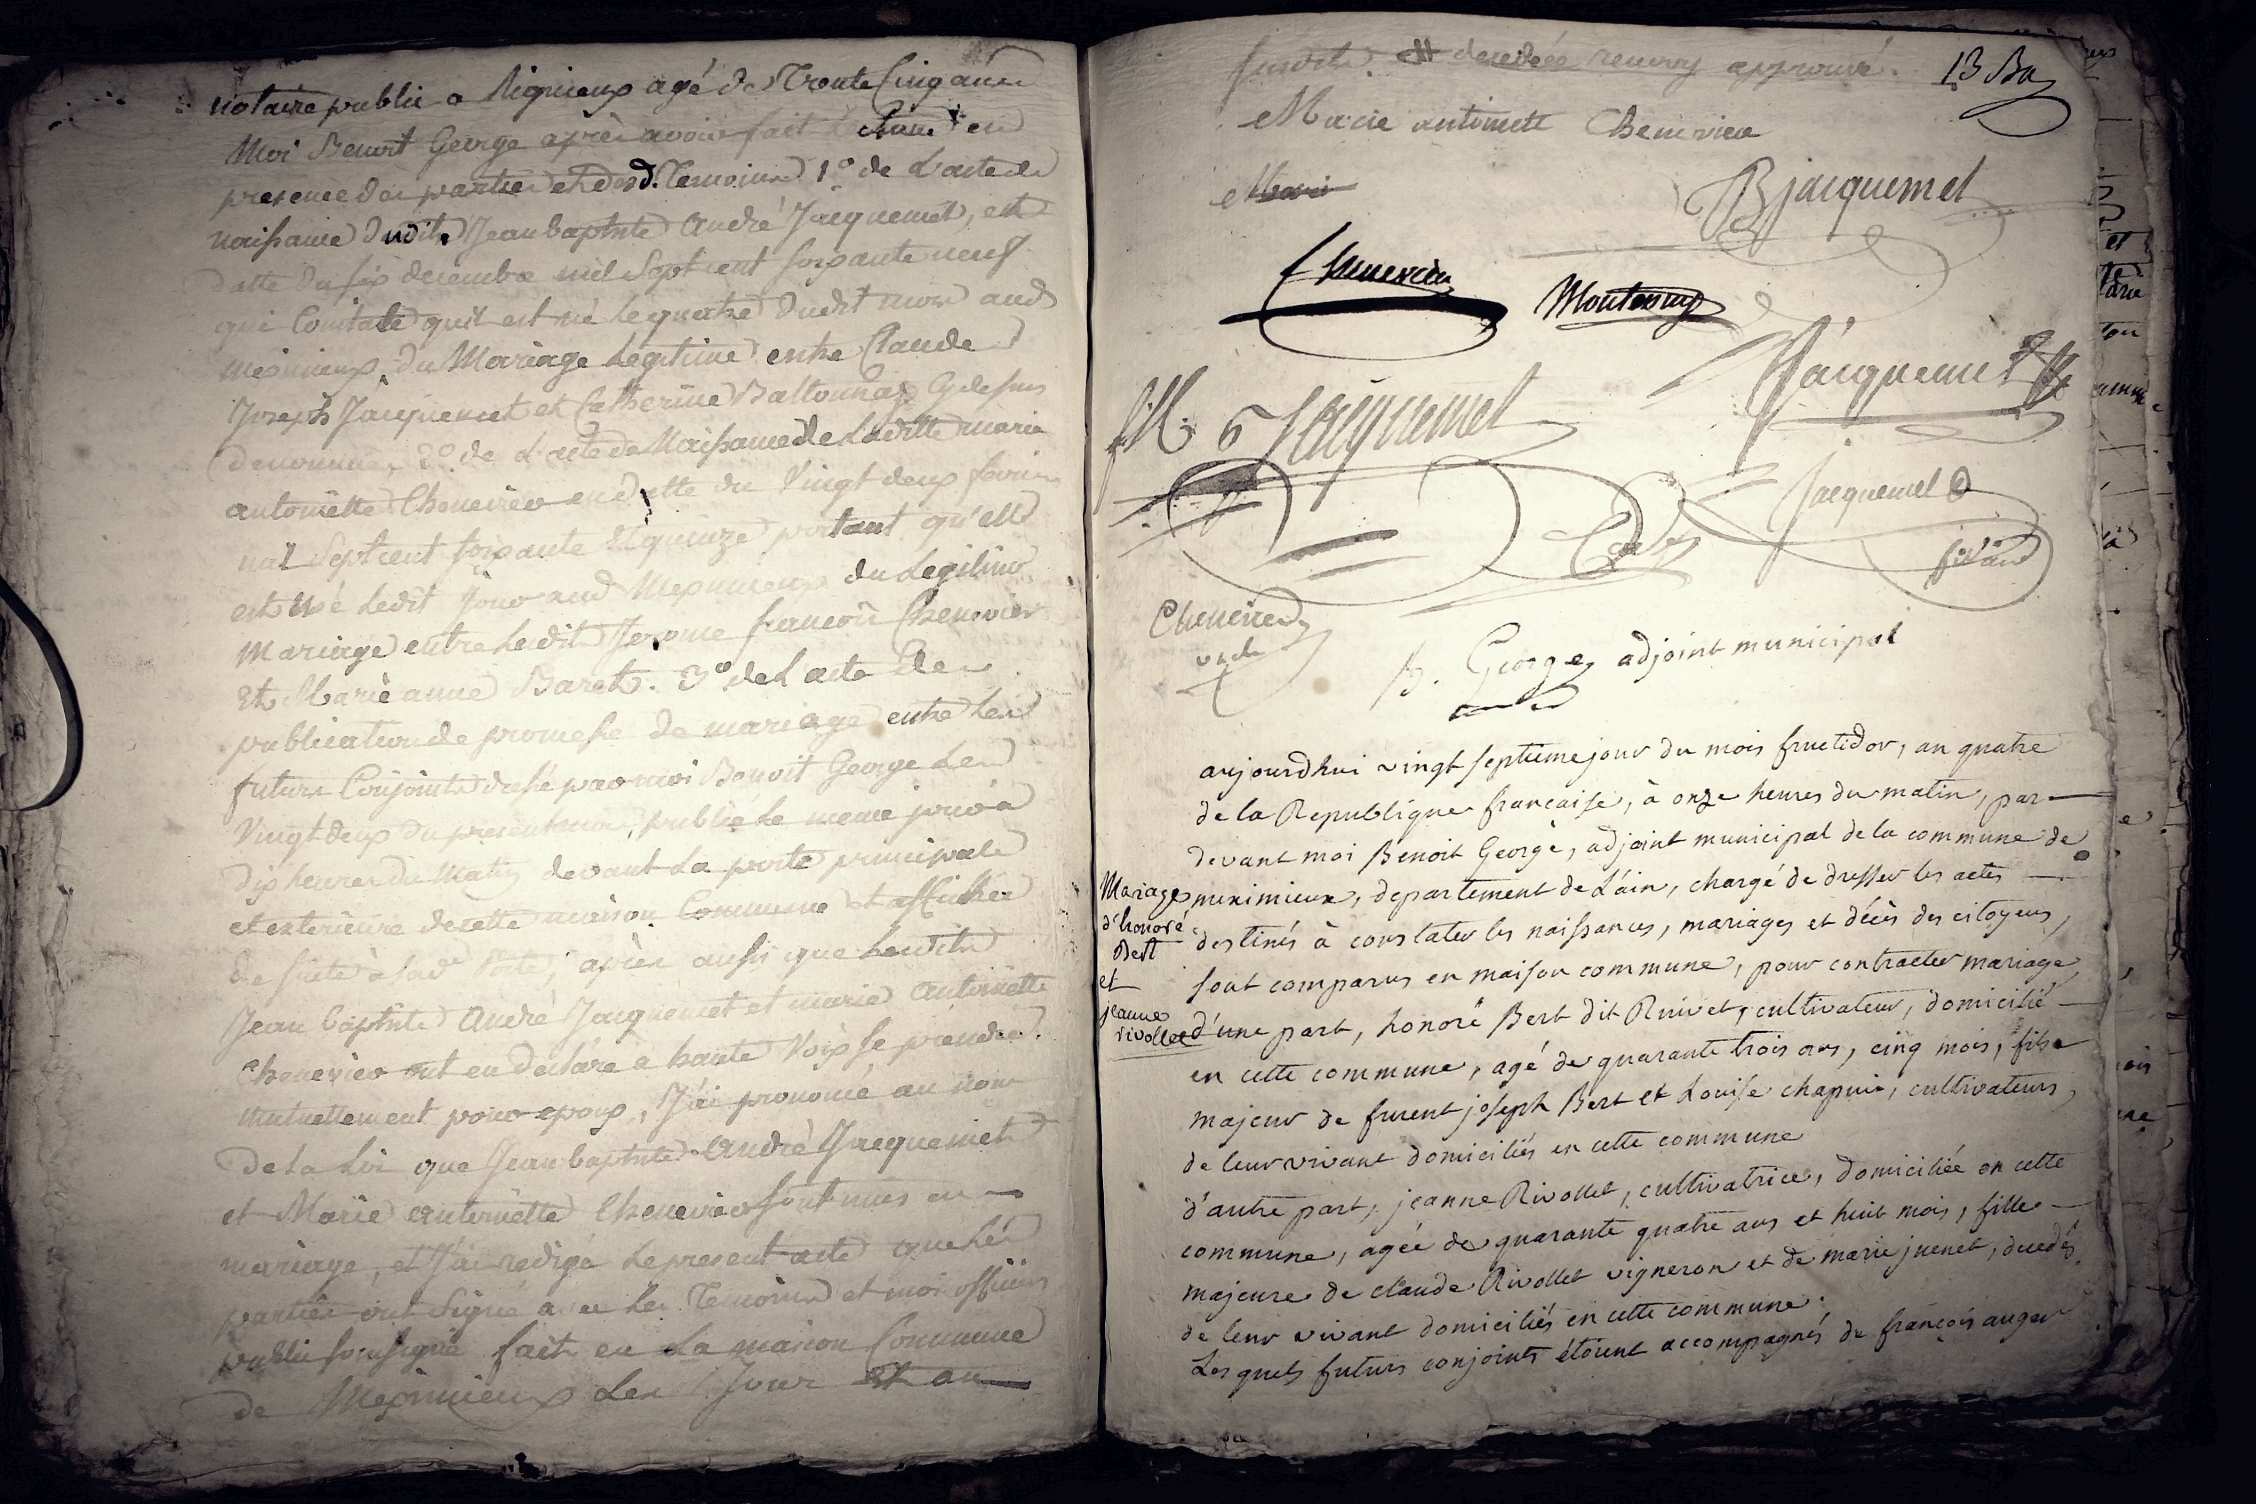 notaire public a Rignieux agé de Trente Cinq année
Moi Benoit George après avoir fait lecture en
presence des parties et desd. Temoins 1º de L'acte de
naissance dudit Jean baptiste André Jacquemet, en
datte du six decembre mil Sept cent soixante neuf
qui Constate quil est né le quatre dudit mois aud
meximieux, du Mariage Legitime entre Claude
Joseph Jacquemet et Catherine Baltonnas Cydessus
denommés, 2º de L'acte de Naissance de Laditte marie
antoinette Chenevier en datte du Vingt deux fevrier
mil Sept cent soixante et quinze portant qu'elle
est né Ledit Jour aud Meximieux du Legitime
Mariage entre Ledit Jerome françois Chenevier
et Marie anne Baret. 3º de L'acte de
publication de promesse de mariage entre Les
futurs Conjoints dressé par moi Benoit George Le
Vingt deux du present mois, publié le meme jour à
dix heures du Matin devant La porte principale
et exterieure de cette maison Commune et affichée
de suite à lad. Porte; après aussi que Lesdits
Jean baptiste André Jacquemet et marie antoinette
Chenevier ont eu déclaré a haute Voix se prendre
mutuellement pour epoux, J'ai prononcé au nom
de la Loi que Jean baptiste André Jacquemet
et Marie antoinette Chenevier sont unis en
mariage, et J'ai redigé Le present acte que Les
parties ont Signé avec Les Temoins et moi officier
public soussigné fait en La maison Commune
de Meximieux Les Jour et an
susdits. approuvé.
13 Ba
Marie antoinette Chenevier
Marie
B Jacquemet
Chenevier
Montessuy
Jacquemet
Jacquemet
Jacquemet
Chenevier
B. George, adjoint municipal
aujourdhui vingt septieme jour du mois fructidor, an quatre
de la Republique francaise, à onze heures du matin, par
devant moi Benoit George, adjoint municipal de la commune de
meximieux, departement de L'ain, chargé de dresser les actes
destinés à constater les naissances, mariages et décès des citoyens,
sont comparus en maison commune, pour contracter mariage,
d'une part, honoré Bert dit Ruivet, cultivateur, domicilié
en cette commune, agé de quarante trois ans, cinq mois, fils
majeur de furent joseph Bert et Louise chapuis, cultivateurs,
de leur vivant domiciliés en cette commune
d'autre part, jeanne Rivollet, cultivatrice, domiciliée en cette
commune, agée de quarante quatre ans et huit mois, fille
majeure de claude Rivollet vigneron et de marie juenet, decedés,
de leur vivant domiciliés en cette commune;
Lesquels futurs conjoints étoient accompagnés de françois auger
Mariage
d'honoré
Bert
et
jeanne
rivollet